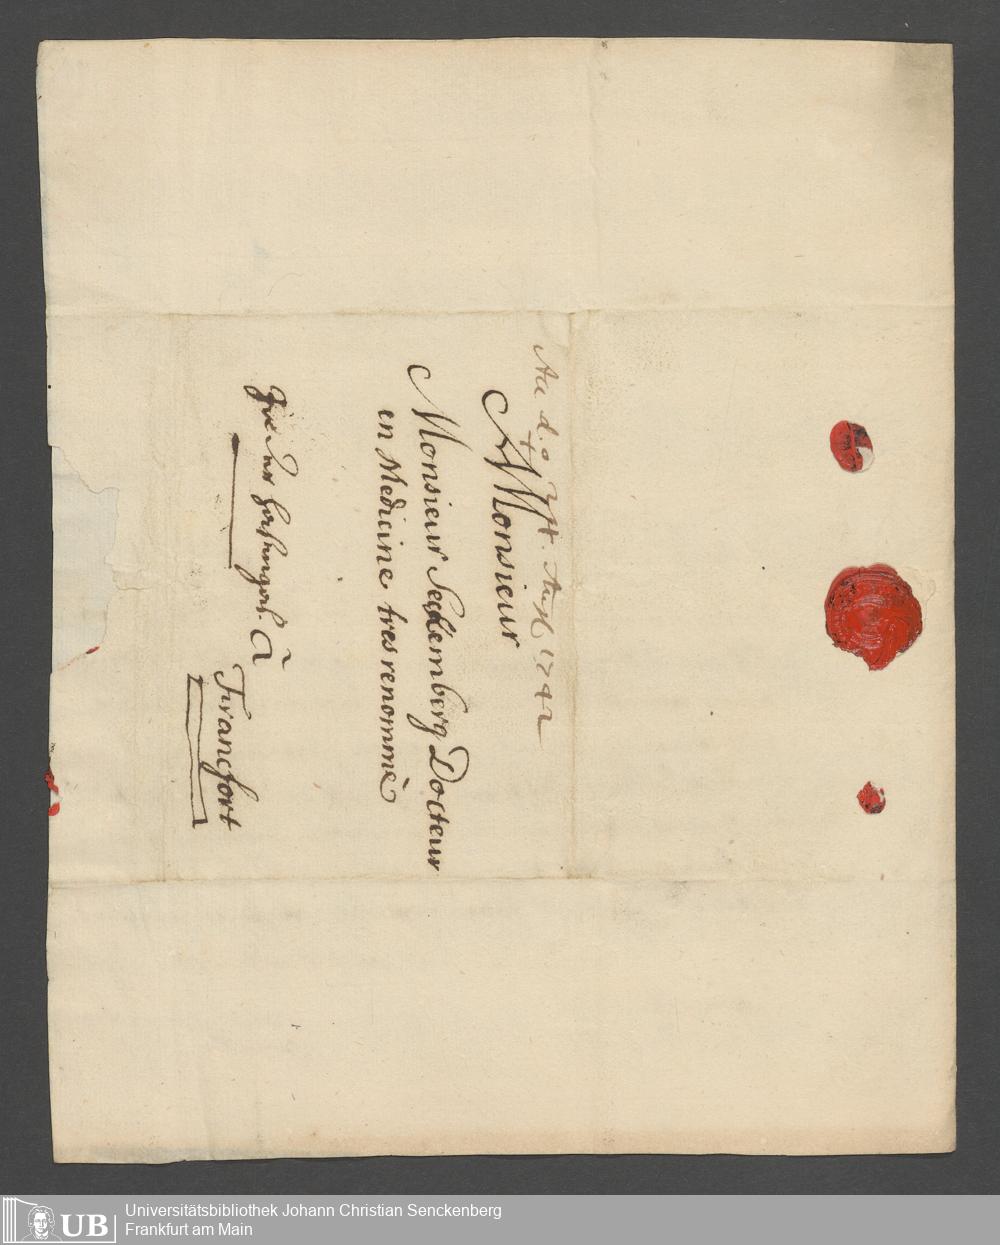 d. 9 Aug 1742
A Monsieur
Monsieur Seckemberg Docteur
en Medicine tres renommè
à
Francfort
UB
Universitätsbibliothek Johann Christian Senckenberg
Frankfurt am Main